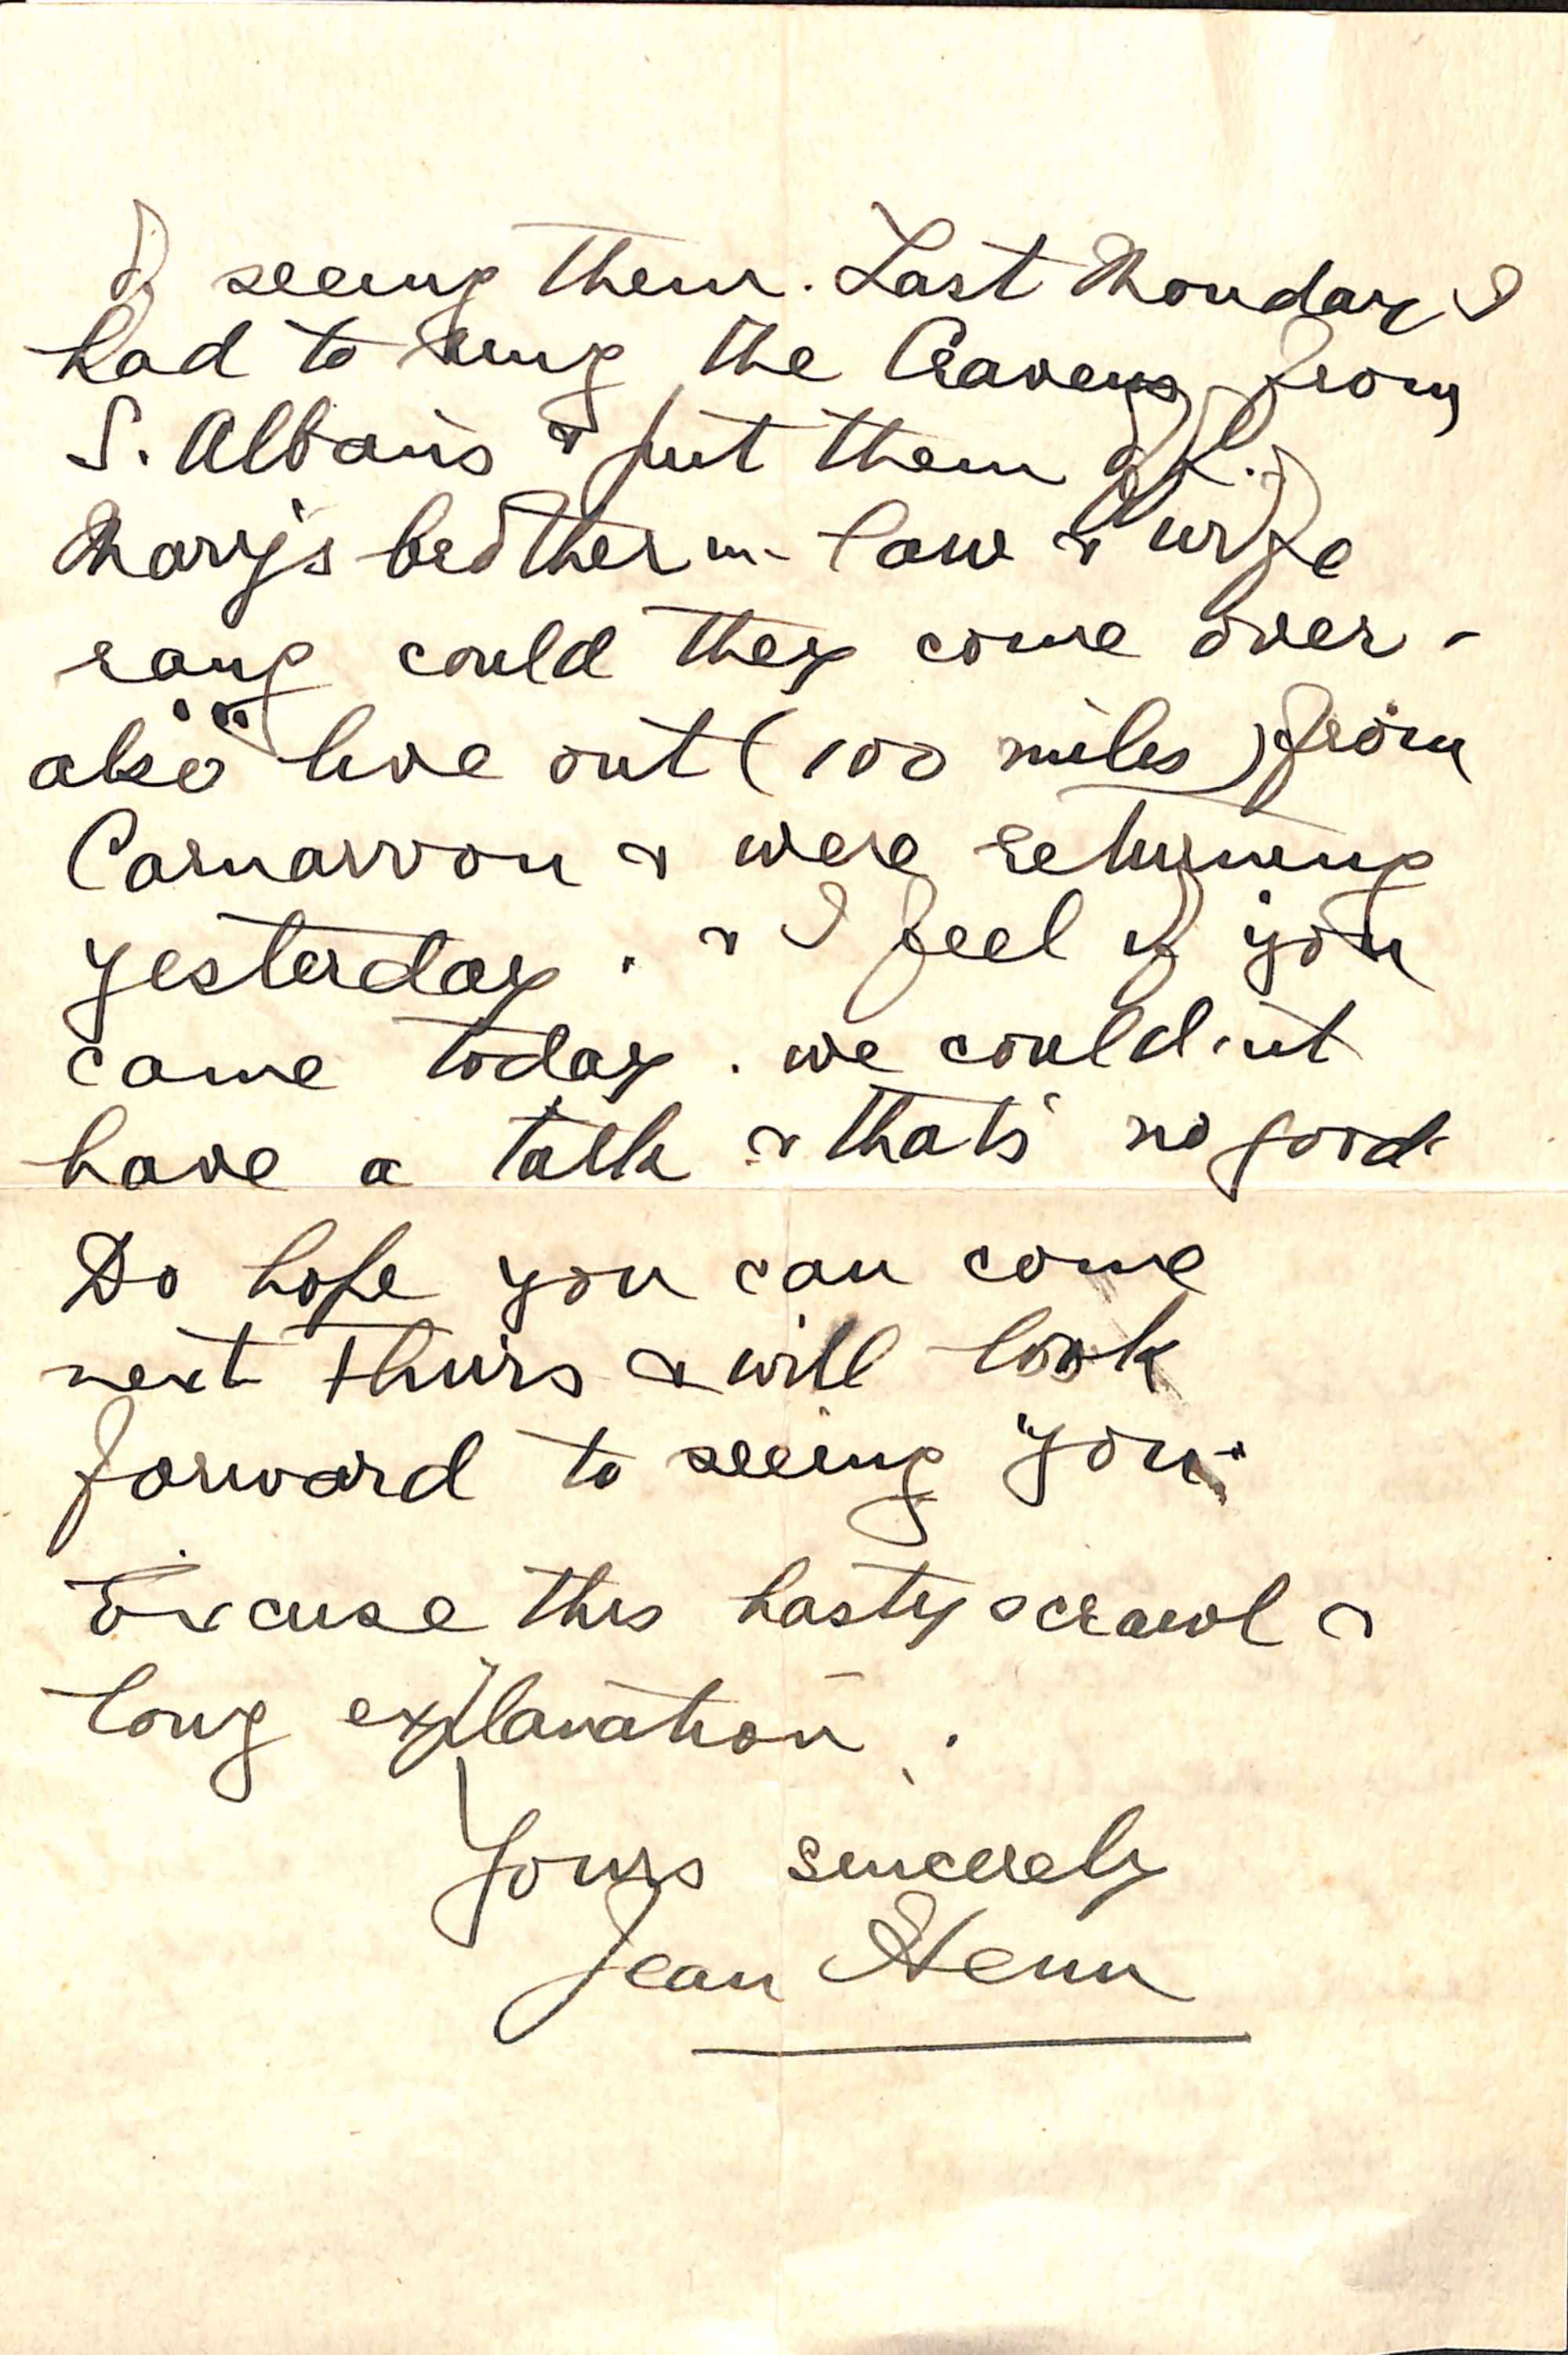 of seeing them. Last Monday I
had to ring the Cravens from
S. Albans & put them off.
Mary's brother in-law & wife
rang could they come over -
also live out (100 miles) from
Carnarvon & were returning
yesterday. & I feel if you
came today. we could.nt
have a talk & that's no good
Do hope you can come
next Thurs & will look
forward to seeing you.
Excuse this hasty scrawl &
long explanation.
Yours sincerely
Jean Henn